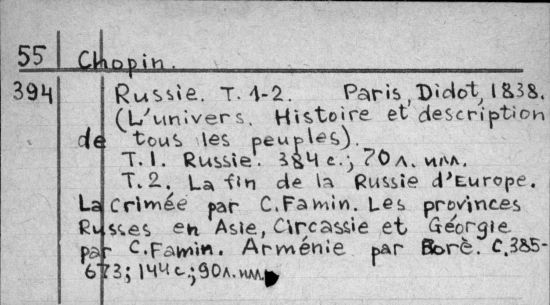 55 Chopin.
394 Russie. T. 1-2. Paris, Didot, 1838.
(L'univers. Histoire et description
de tous les peuples).
T. 1. Russie. 384 с.; 70 л. илл.
T. 2. La fin de la Russie d'Europe.
La crimée par C. Famin. Les provinces
Russes en Asie, Circassie et Géorgie
par C. Famin. Arménie par Borè. с. 385-
673; 144 с.; 90 л. илл.